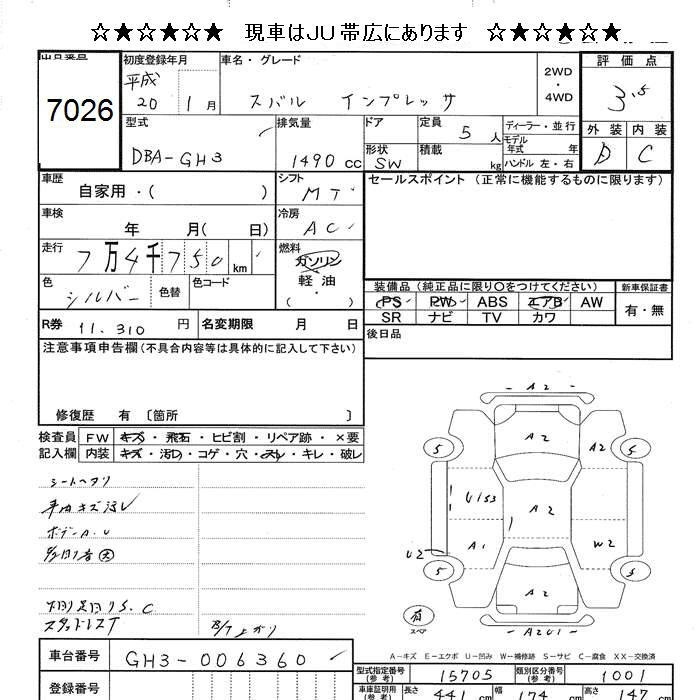 ☆★☆★☆★ 現車はJU帯広にあります ☆★☆★☆★
出品番号 初度登録年月 車名・グレード 評価点
7026
平成 20 1月 スバル インプレッサ 2WD・4WD 3.5
型式 排気量 ドア 定員 5人 ディーラー・並行 外装 内装
DBA-GH3 1490cc 形状 SW 積載 kg モデル年式 年 D C
ハンドル 左・右
車歴 自家用・( ) シフト MT セールスポイント (正常に機能するものに限ります)
車検 年 月( 日) 冷房 AC
走行 7万4千750km 燃料 ガソリン 軽油 ( )
色 シルバー 色替 色コード
装備品 (純正品に限り○をつけてください) 新車保証書
PS PW ABS エアB AW 有・無
SR ナビ TV カワ
R券 11.310円 名変期限 月 日 後日品
注意事項申告欄 (不具合内容等は具体的に記入して下さい)
修復歴 有 〔箇所 〕
検査員 FW キズ・飛石・ヒビ割・リペア跡・×要
記入欄 内装 キズ・汚れ・コゲ・穴・スレ・キレ・破レ
シートヘタリ
車内キズ汚レ
ボデーA.U
スタッドレスT
A2
A2
A2
5
5
U153
A2
A1
W2
U2
5
5
A2
有
スペア
A2U1
A-キズ E-エクボ U-凹み W-補修跡 S-サビ C-腐食 XX-交換済
車台番号 GH3-006360 型式指定番号(参考) 15705 類別区分番号(参考) 1001
登録番号 車庫証明用(参考) 長さ 441cm 幅 174cm 高さ 147cm